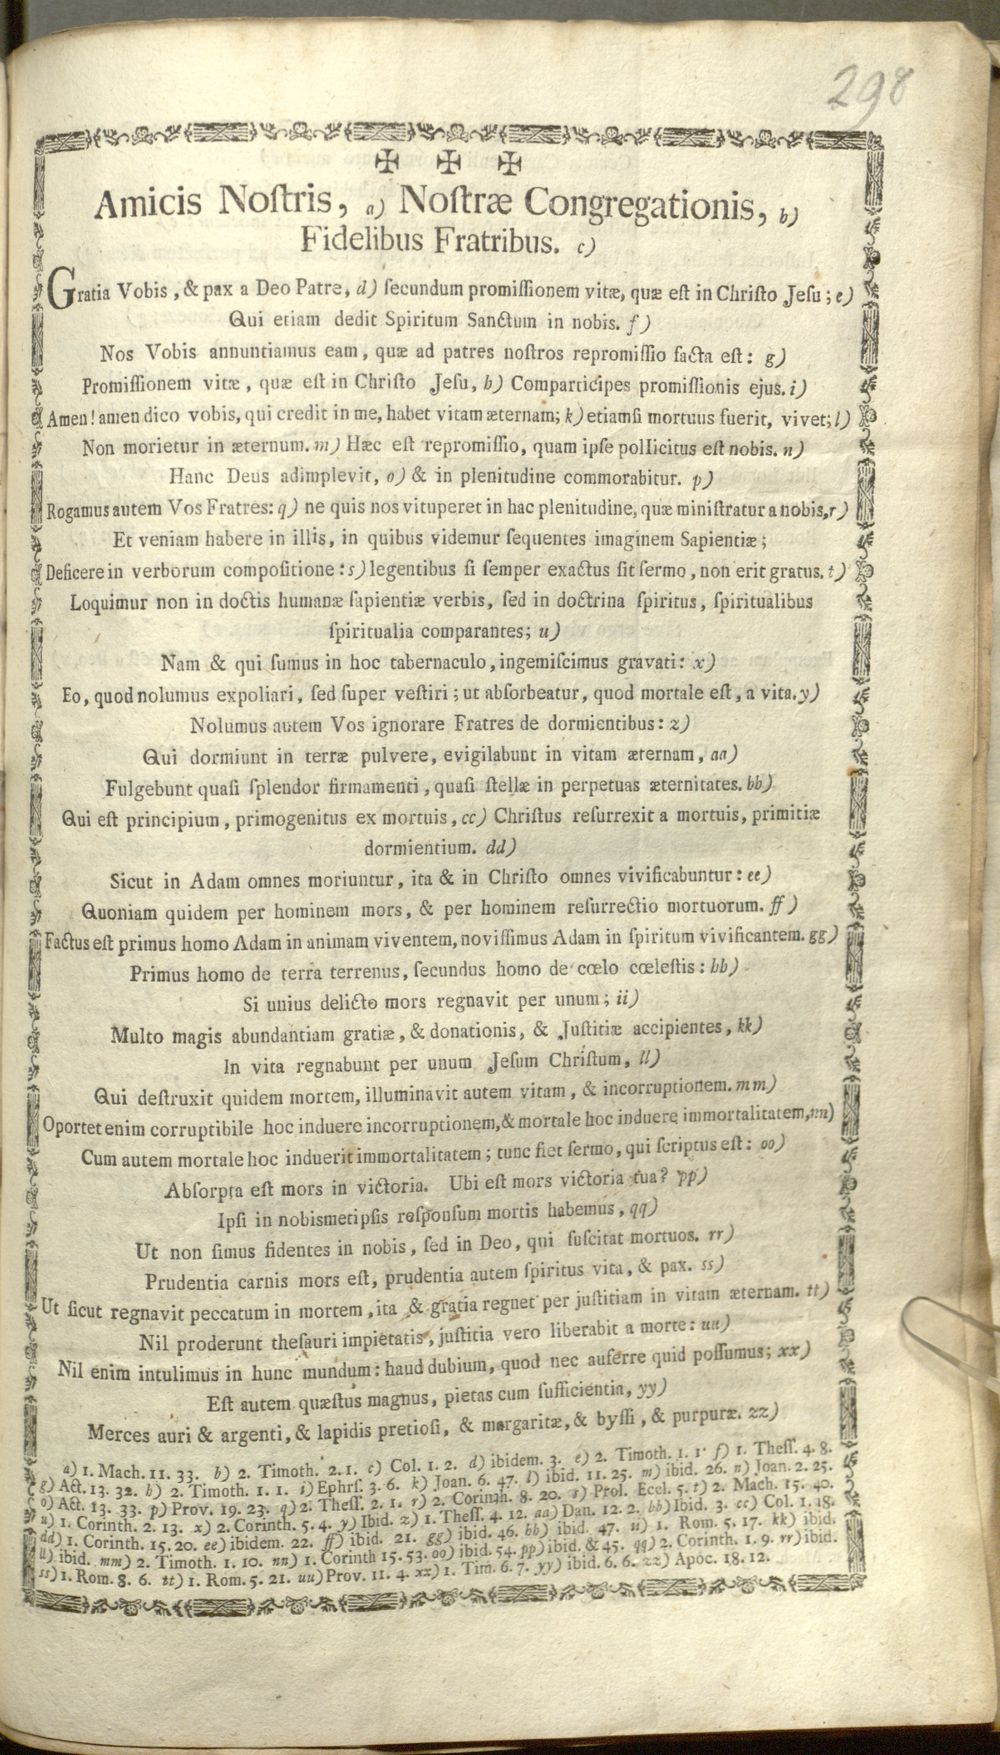 298
✠ ✠ ✠
Amicis Noſtris, a) Noſtræ Congregationis, b)
Fidelibus Fratribus. c)
Gratia Vobis, & pax a Deo Patre, d) ſecundum promiſſionem vitæ, quæ eſt in Chriſto Jeſu; e)
Qui etiam dedit Spiritum Sanctum in nobis. f)
Nos Vobis annuntiamus eam, quæ ad patres noſtros repromiſſio facta eſt: g)
Promiſſionem vitæ, quæ eſt in Chriſto Jeſu, h) Comparticipes promiſſionis ejus. i)
Amen! amen dico vobis, qui credit in me, habet vitam æternam; k) etiamſi mortuus fuerit, vivet; l)
Non morietur in æternum. m) Hæc eſt repromiſſio, quam ipſe pollicitus eſt nobis. n)
Hanc Deus adimplevit, o) & in plenitudine commorabitur. p)
Rogamus autem Vos Fratres: q) ne quis nos vituperet in hac plenitudine, quæ miniſtratur a nobis, r)
Et veniam habere in illis, in quibus videmur ſequentes imaginem Sapientiæ;
Deficere in verborum compoſitione: s) legentibus ſi ſemper exactus ſit ſermo, non erit gratus. t)
Loquimur non in doctis humanæ ſapientiæ verbis, ſed in doctrina ſpiritus, ſpiritualibus
ſpiritualia comparantes; u)
Nam & qui ſumus in hoc tabernaculo, ingemiſcimus gravati: x)
Eo, quod nolumus expoliari, ſed ſuper veſtiri; ut abſorbeatur, quod mortale eſt, a vita. y)
Nolumus autem Vos ignorare Fratres de dormientibus: z)
Qui dormiunt in terræ pulvere, evigilabunt in vitam æternam, aa)
Fulgebunt quaſi ſplendor firmamenti, quaſi ſtellæ in perpetuas æternitates. bb)
Qui eſt principium, primogenitus ex mortuis, cc) Chriſtus reſurrexit a mortuis, primitiæ
dormientium. dd)
Sicut in Adam omnes moriuntur, ita & in Chriſto omnes vivificabuntur: ee)
Quoniam quidem per hominem mors, & per hominem reſurrectio mortuorum. ff)
Factus eſt primus homo Adam in animam viventem, noviſſimus Adam in ſpiritum vivificantem. gg)
Primus homo de terra terrenus, ſecundus homo de cœlo cœleſtis: hh)
Si unius delicto mors regnavit per unum; ii)
Multo magis abundantiam gratiæ, & donationis, & Juſtitiæ accipientes, kk)
In vita regnabunt per unum Jeſum Chriſtum, ll)
Qui deſtruxit quidem mortem, illuminavit autem vitam, & incorruptionem. mm)
Oportet enim corruptibile hoc induere incorruptionem, & mortale hoc induere immortalitatem, nn)
Cum autem mortale hoc induerit immortalitatem; tunc fiet ſermo, qui ſcriptus eſt: oo)
Abſorpta eſt mors in victoria. Ubi eſt mors victoria tua? pp)
Ipſi in nobismetipſis reſponſum mortis habemus, qq)
Ut non ſimus fidentes in nobis, ſed in Deo, qui ſuſcitat mortuos. rr)
Prudentia carnis mors eſt, prudentia autem ſpiritus vita, & pax. ss)
Ut ſicut regnavit peccatum in mortem, ita & gratia regnet per juſtitiam in vitam æternam. tt)
Nil proderunt theſauri impietatis, juſtitia vero liberabit a morte: uu)
Nil enim intulimus in hunc mundum: haud dubium, quod nec auferre quid poſſumus; xx)
Eſt autem quæſtus magnus, pietas cum ſufficientia, yy)
Merces auri & argenti, & lapidis pretioſi, & margaritæ, & byſſi, & purpuræ. zz)
a) 1. Mach. 11. 33. b) 2. Timoth. 2. 1. c) Col. 1. 2. d) ibidem. 3. e) 2. Timoth. 1. 1. f) 1. Theſſ. 4. 8.
g) Act. 13. 32. h) 2. Timoth. 1. 1. i) Ephrſ. 3. 6. k) Joan. 6. 47. l) ibid. 11. 25. m) ibid. 26. n) Joan. 2. 25.
o) Act. 13. 33. p) Prov. 19. 23. q) 2. Theſſ. 2. 1. r) 2. Corinth. 8. 20. s) Prol. Eccl. 5. t) 2. Mach. 15. 40.
u) 1. Corinth. 2. 13. x) 2. Corinth. 5. 4. y) Ibid. z) 1. Theſſ. 4. 12. aa) Dan. 12. 2. bb) Ibid. 3. cc) Col. 1. 18.
dd) 1. Corinth. 15. 20. ee) ibidem. 22. ff) ibid. 21. gg) ibid. 46. hh) ibid. 47. ii) 1. Rom. 5. 17. kk) ibid.
ll) ibid. mm) 2. Timoth. 1. 10. nn) 1. Corinth 15. 53. oo) ibid. 54. pp) ibid. & 45. qq) 2. Corinth. 1. 9. rr) ibid.
ss) 1. Rom. 8. 6. tt) 1. Rom. 5. 21. uu) Prov. 11. 4. xx) 1. Tim. 6. 7. yy) ibid. 6. 6. zz) Apoc. 18. 12.